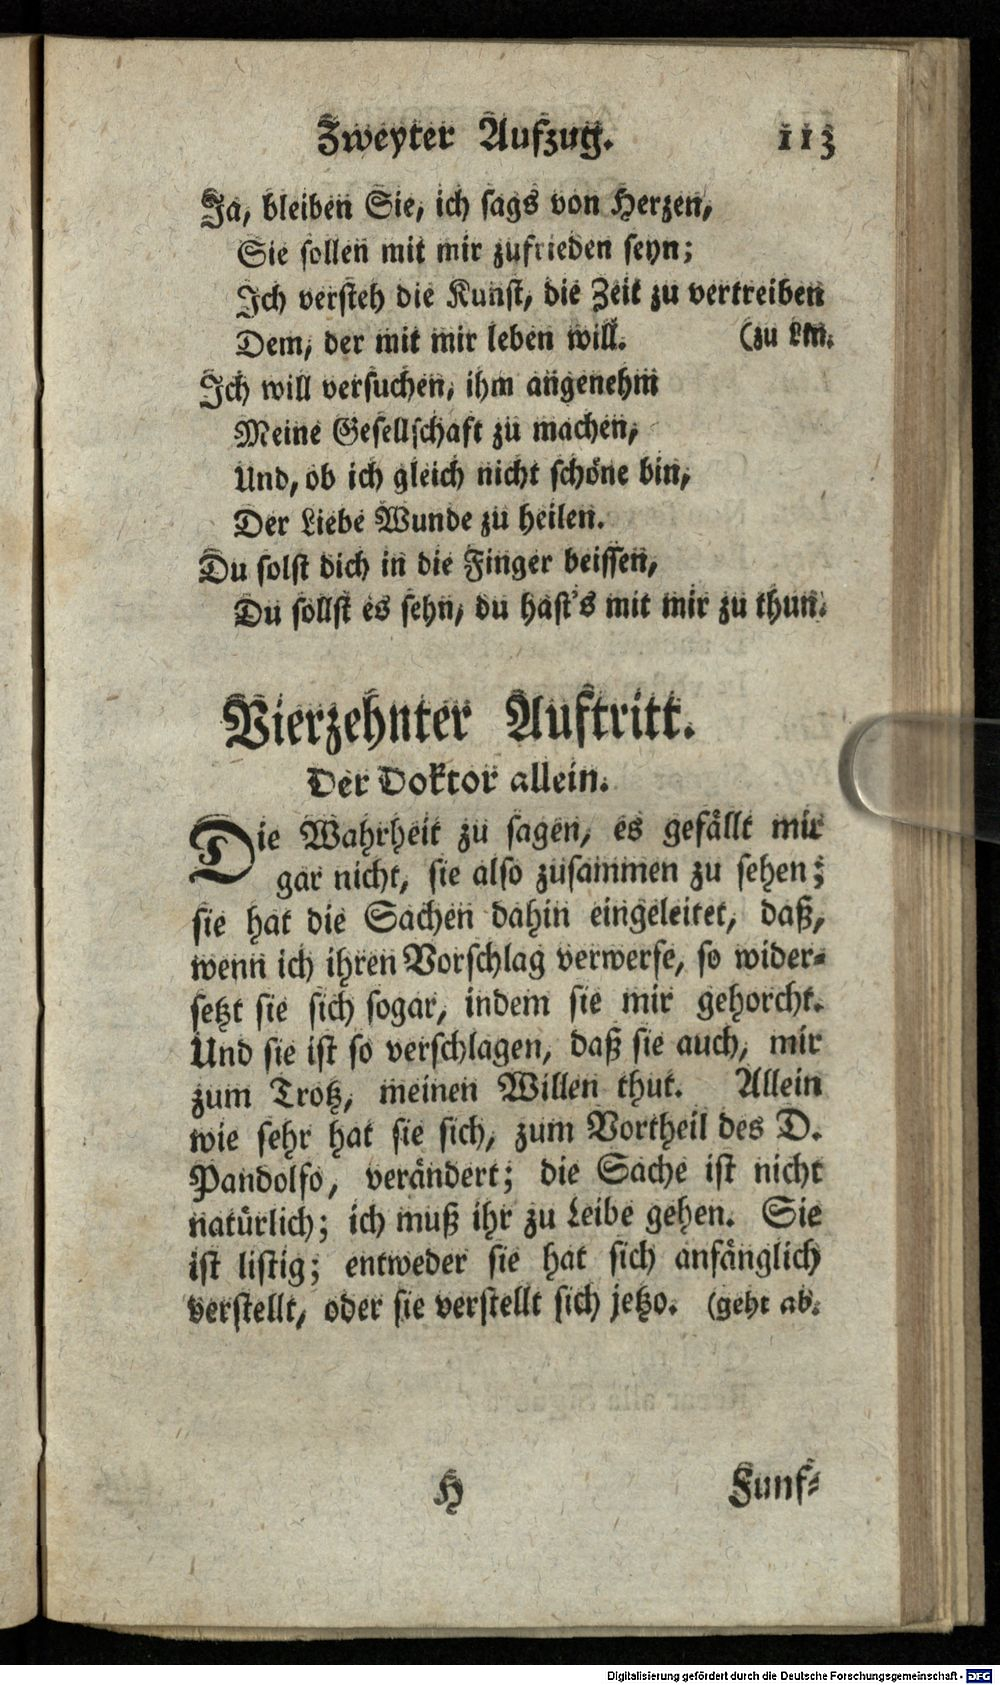 Zweyter Aufzug. 113
Ja, bleiben Sie, ich sags von Herzen,
Sie sollen mit mir zufrieden seyn;
Ich versteh die Kunst, die Zeit zu vertreiben
Dem, der mit mir leben will. (zu Lm.
Ich will versuchen, ihm angenehm
Meine Gesellschaft zu machen,
Und, ob ich gleich nicht schöne bin,
Der Liebe Wunde zu heilen.
Du solst dich in die Finger beissen,
Du sollst es sehn, du hast's mit mir zu thun.
Vierzehnter Auftritt.
Der Doktor allein.
Die Wahrheit zu sagen, es gefällt mir
gar nicht, sie also zusammen zu sehen;
sie hat die Sachen dahin eingeleitet, daß,
wenn ich ihren Vorschlag verwerfe, so wider-
setzt sie sich sogar, indem sie mir gehorcht.
Und sie ist so verschlagen, daß sie auch, mir
zum Trotz, meinen Willen thut. Allein
wie sehr hat sie sich, zum Vortheil des D.
Pandolfo, verändert; die Sache ist nicht
natürlich; ich muß ihr zu Leibe gehen. Sie
ist listig; entweder sie hat sich anfänglich
verstellt, oder sie verstellt sich jetzo. (geht ab.
H Funf-
Digitalisierung gefördert durch die Deutsche Forschungsgemeinschaft - DFG